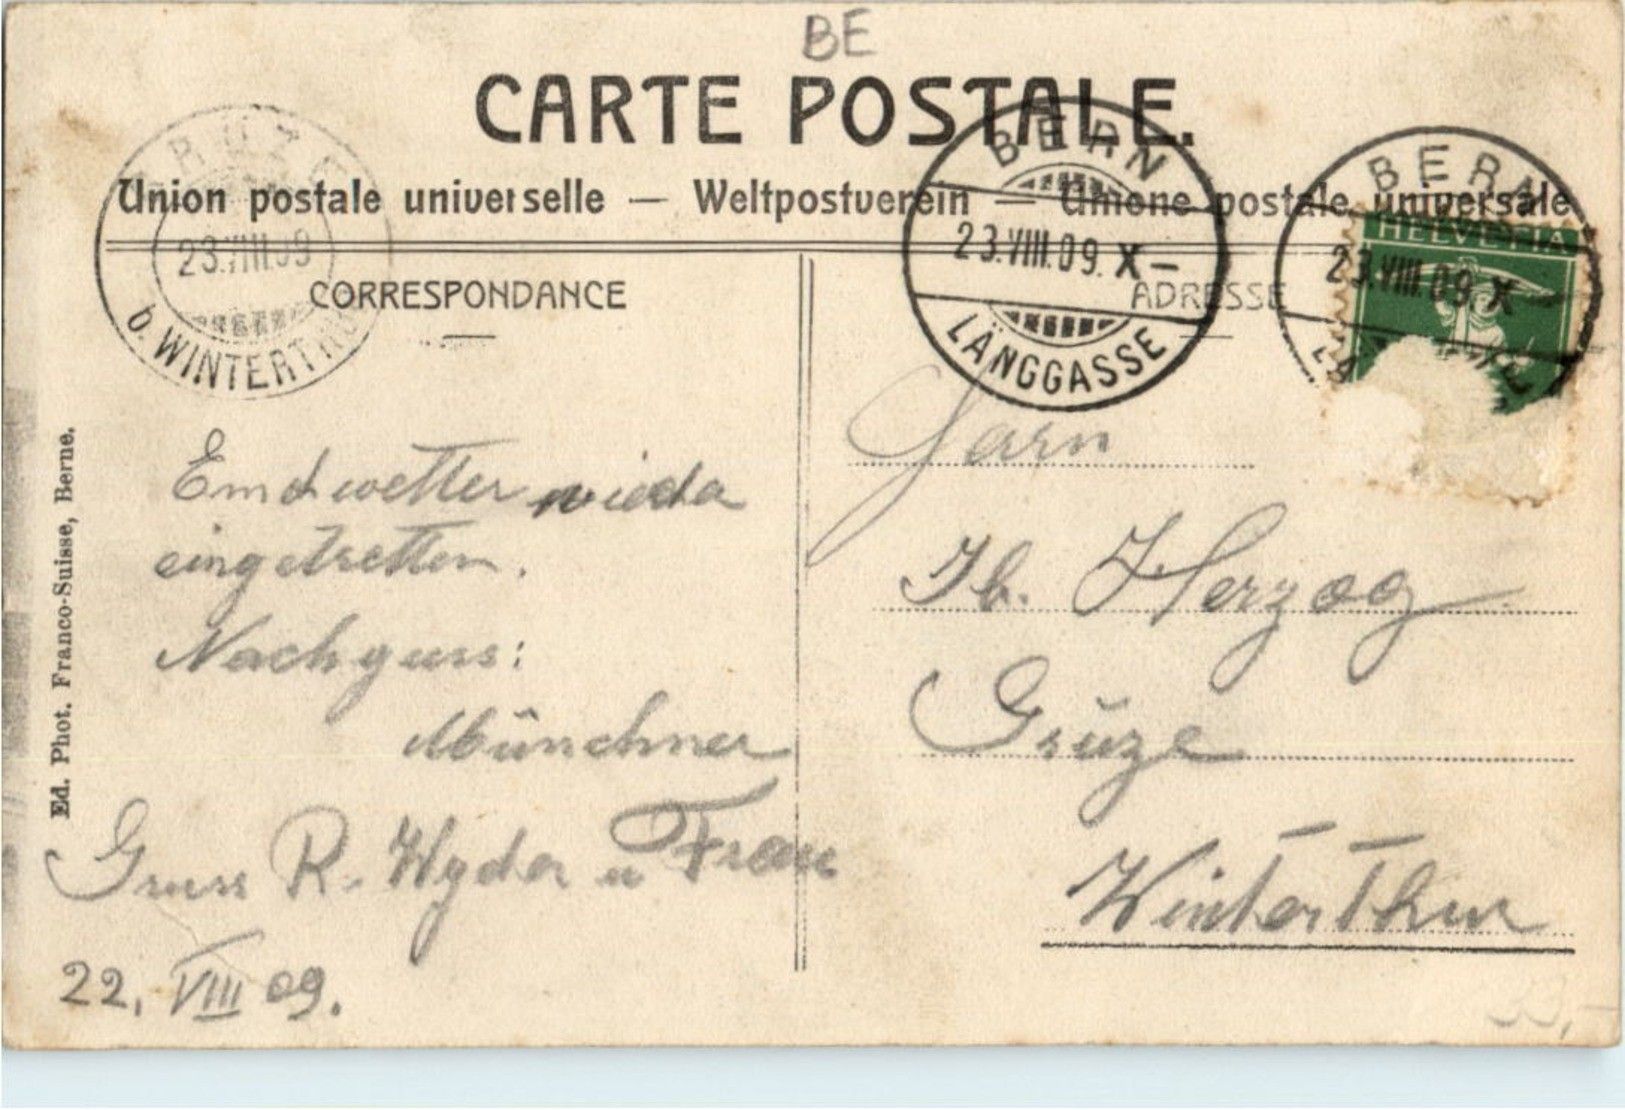 BE
CARTE POSTALE.
Union postale universelle — Weltpostverein — Unione postale universale
RÜZE
23.VIII.09
b. WINTERTHUR
BERN
23.VIII.09. X–
LÄNGGASSE
BERN
23.VIII.09 X
HELVETIA
CORRESPONDANCE
ADRESSE
wieder
eingetretten.
Nachguss:
Münchner
Gruss R. Wyder u Frau
22. VIII 09.
Jb. Herzog
Grüze
Winterthur
Ed. Phot. Franco-Suisse, Berne.
33,-